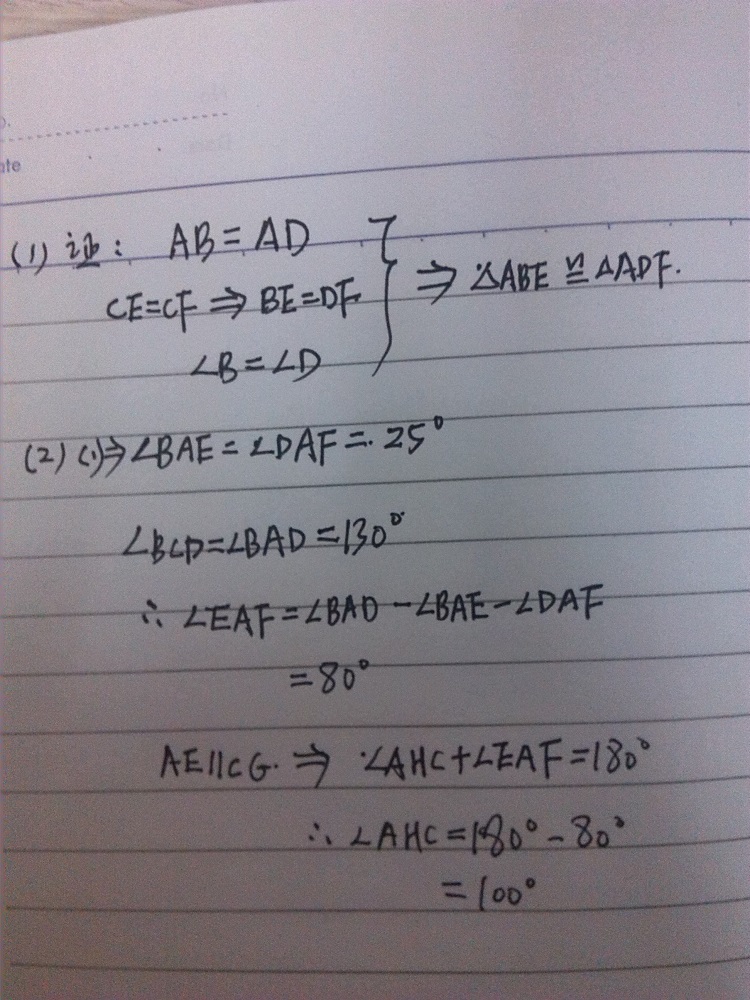 ate
(1) 证: AB=AD
CE=CF ⇒ BE=DF
∠B=∠D
⇒ △ABE ≌ △ADF.
(2) (1)⇒ ∠BAE=∠DAF=25°
∠BCD=∠BAD=130°
∴ ∠EAF=∠BAD-∠BAE-∠DAF
=80°
AE∥CG. ⇒ ∠AHC+∠EAF=180°
∴ ∠AHC=180°-80°
=100°